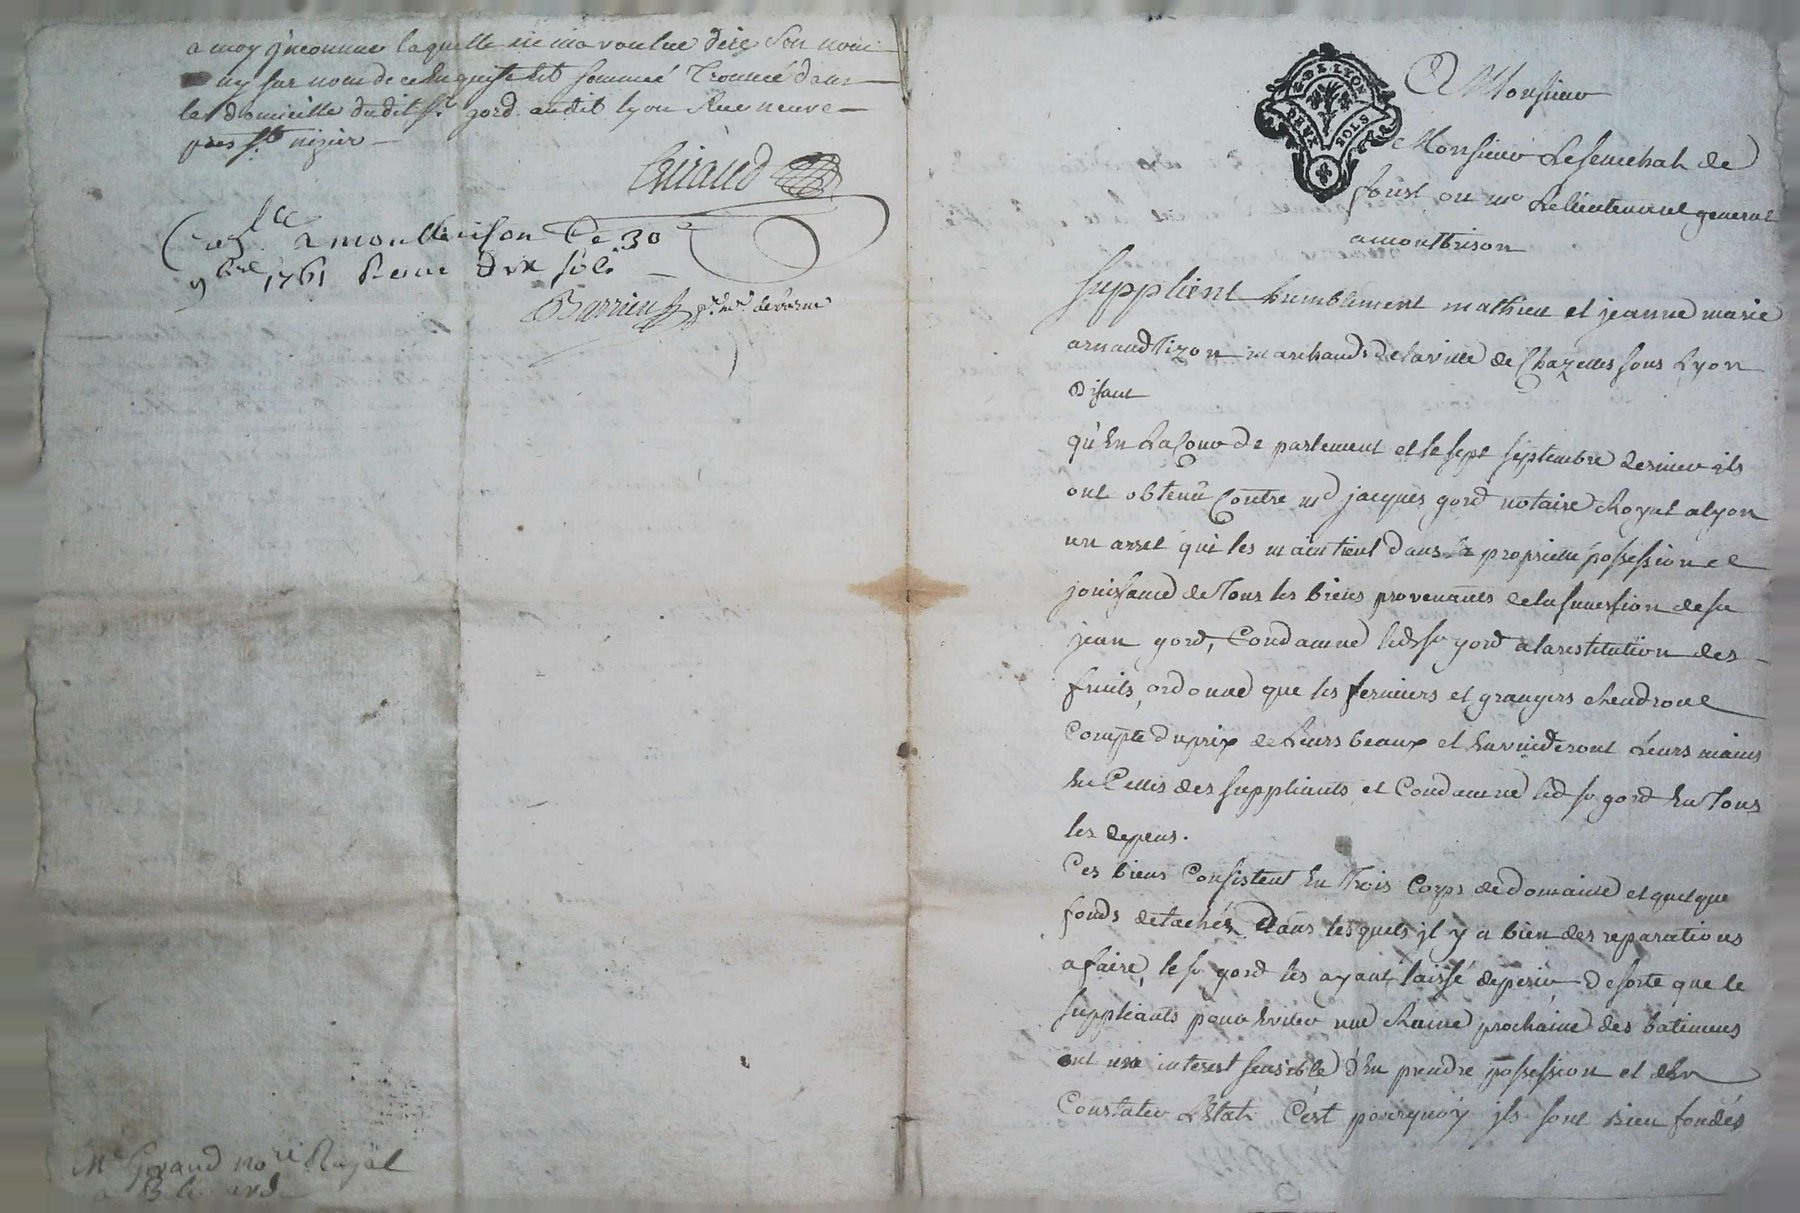 a moy inconnue laquelle ne ma voulue dire son nom
ny sur nom de ce enquise et sommée trouvée dans
le domicille dudit sr gord audit lyon Rue neuve
pres st nizier
Giraud
a montbrison le 30e
9bre 1761 Receu dix sols
Barrieu
Me Giraud no.re Royal
a
G. DE LYON
DEUX SOLS
A Monsieur
Monsieur Le senechal de
forest ou mr Le lieutenant general
a montbrison
Supplient humblement mathieu et jeanne marie
arnaud Tizon marchands de la ville de Chazelles sous Lyon
Disant
qu'en La Cour de parlement et le sept septembre dernier ils
ont obtenu Contre me jacques gord notaire Royal a lyon
un arret qui les maintient dans la proprieté possession et
jouissance de Tous les biens provenants de la succession de fu
jean gord, Condamne led sr gord a la restitution des
fruits, ordonne que les fermiers et grangers Rendront
Compte du prix de Leurs beaux et En vuideront Leurs mains
En Celles des suppliants et Condamne led sr gord En Tous
les depens.
Ces biens Consistent En Trois Corps de domaine et quelque
fonds detachés dans lesquels jl y a bien des reparations
a faire, le sr gord les ayant laissé deperir de sorte que le
suppliants pour Eviter une Ruine prochaine des batimens
ont un interest sensible d'En prendre possession et d'En
Constater L'Etat. C'est pourquoy jls sont Bien fondés